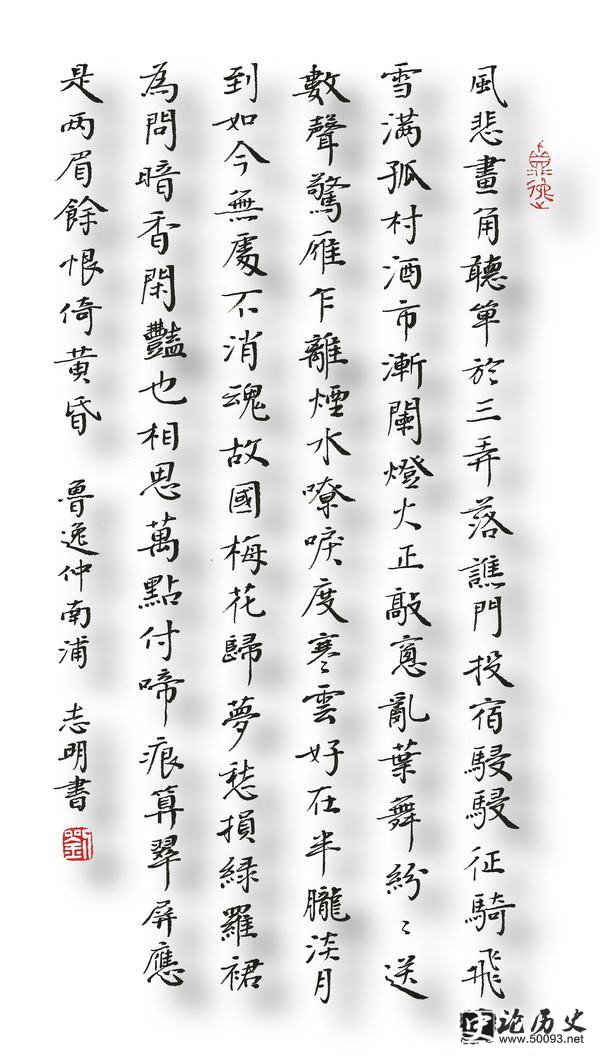 風悲畫角聽單於三弄落譙門投宿駸駸征騎飛
雪满孤村酒市漸闌燈火正敲窻亂葉舞紛〻送
數聲驚雁乍離煙水嘹唳度寒雲好在半朧淡月
到如今無處不消魂故國梅花歸夢愁損綠羅裙
為問暗香閑豔也相思萬點付啼痕算翠屏應
是两眉餘恨倚黄昏 魯逸仲南浦 志明書
劉
论历史
www.50093.net